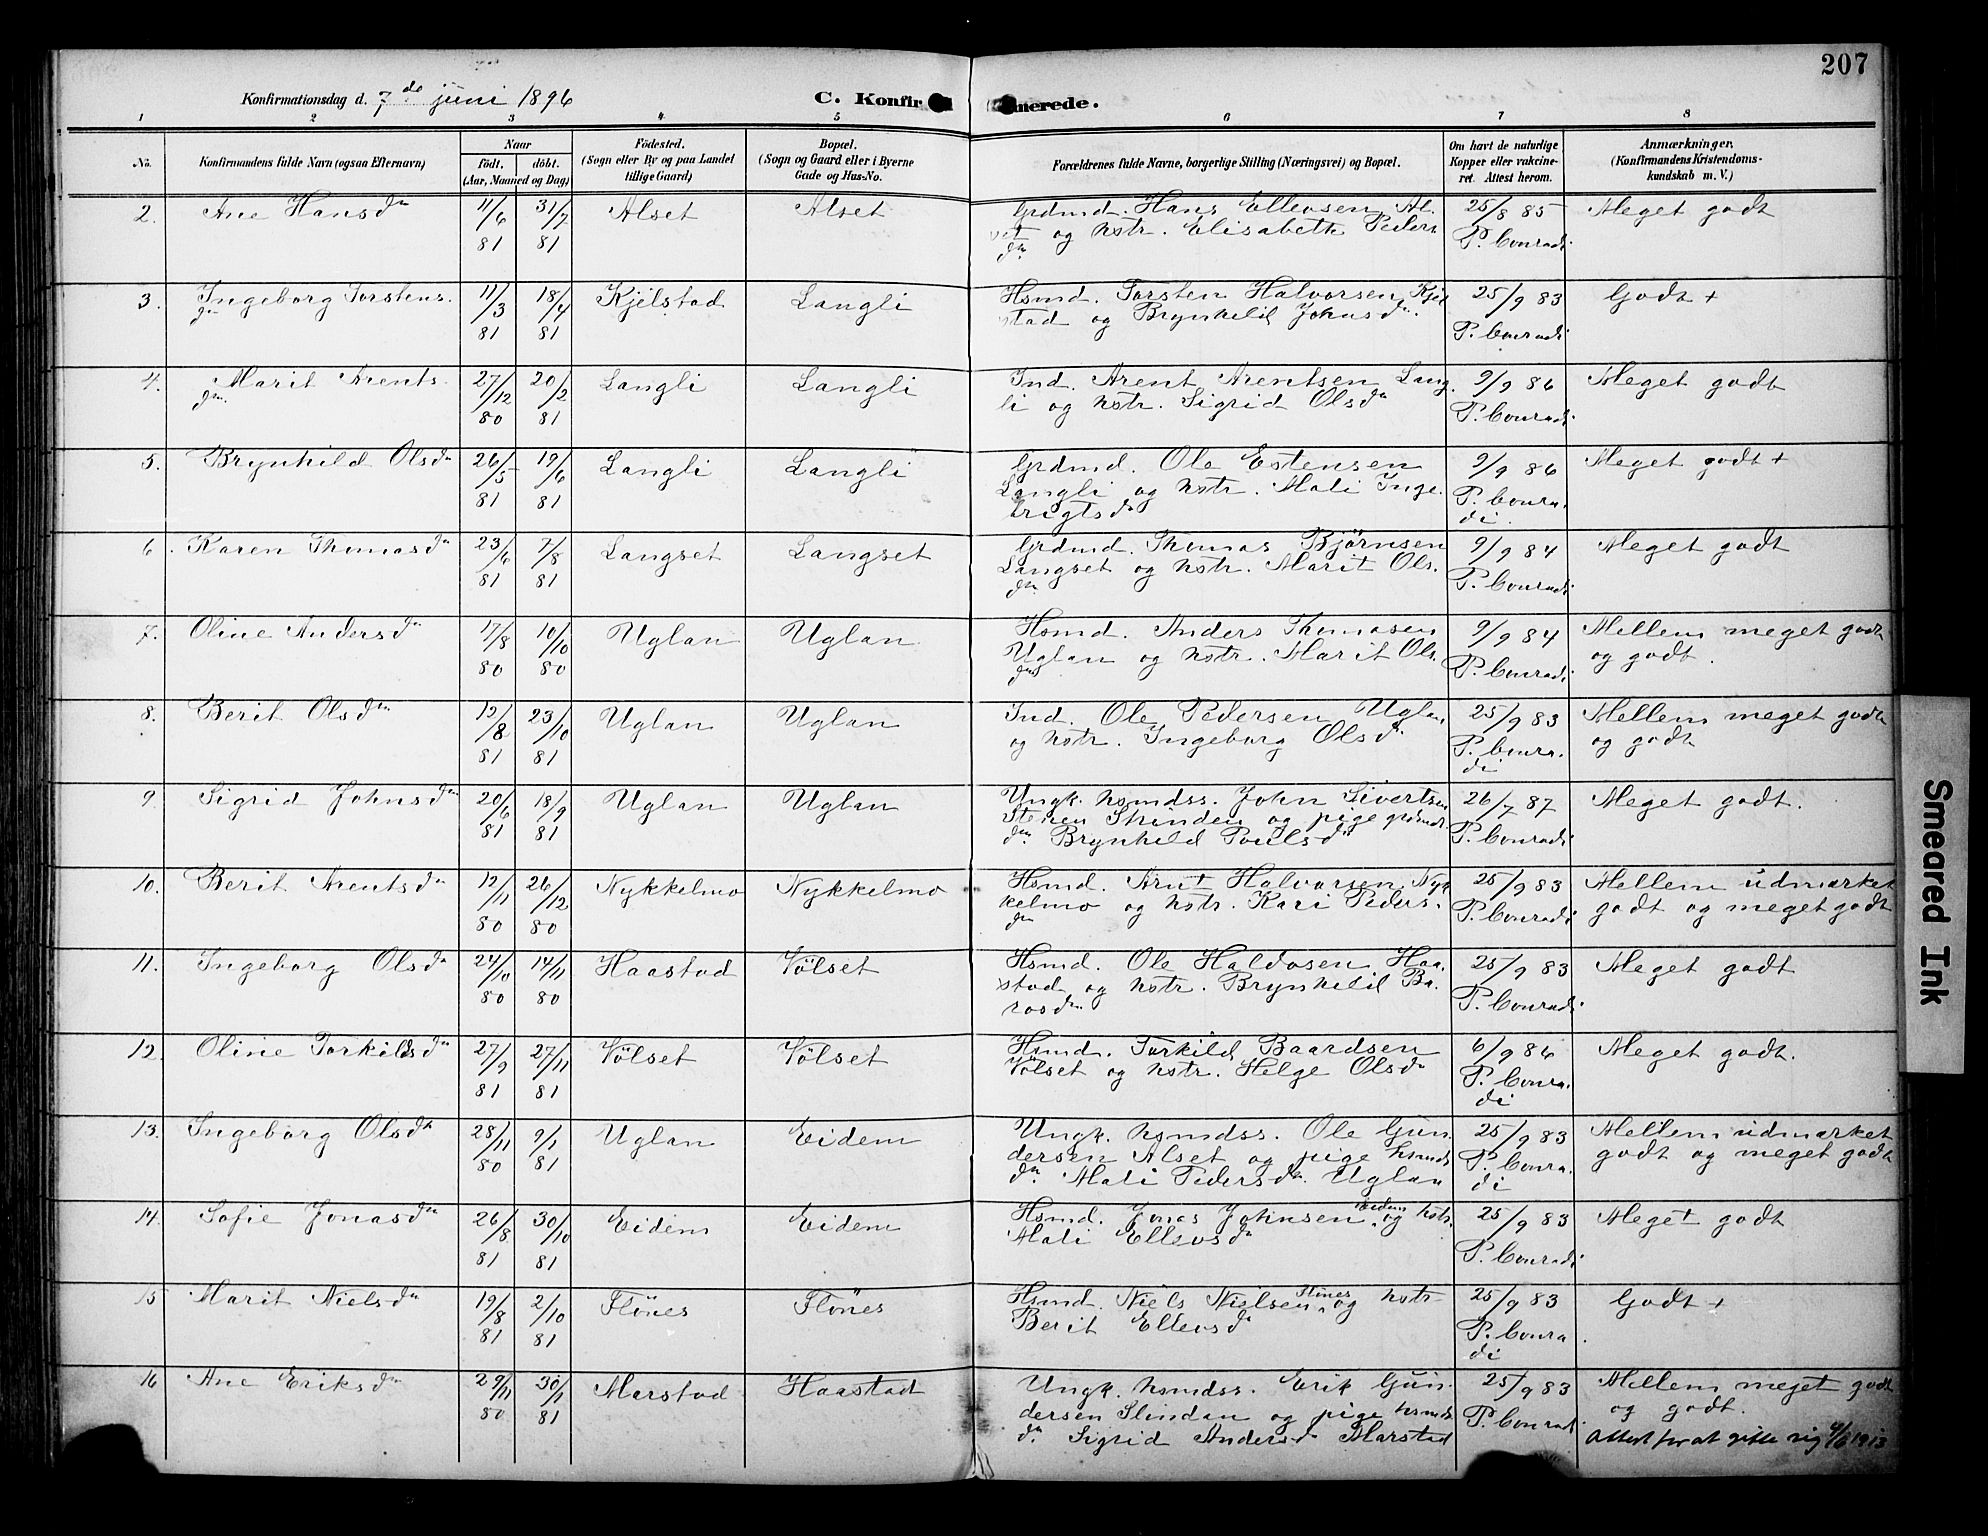 207
Konfirmationsdag d. 7de juni 1896 C. Konfirmerede.
1 2 3 4 5 6 7 8
No.
Konfirmandens fulde Navn (ogsaa Efternavn)
Naar
født. døbt.
(Aar, Maaned og Dag)
Födested.
(Sogn eller By og paa Landet
tillige Gaard)
Bopæl.
(Sogn og Gaard eller i Byerne
Gade og Hus-No.
Forældrenes fulde Navne, borgerlige Stilling (Næringsvei) og Bopæl.
Om havt de naturlige
Kopper eller vakcine-
ret. Attest herom.
Anmærkninger.
(Konfirmandens Kristendoms-
kundskab m. V.)
2. Ane Hansdn 11/6 81 31/7 81 Alset Alset
Grdmd. Hans Ellevsen Al-
set og hstr. Elisabeth Peders
dn
25/8 85
P. Conradi
Meget godt
3. Ingeborg Torstens.
dn 11/3 81 18/4 81 Kjelstad Langli
Hsmd. Torsten Halvorsen Kjel
stad og Brynhild Johnsdn.
25/9 83
P. Conradi
Godt +
4. Marit Arents
dn. 27/12 80 20/2 81 Langli Langli
Ind. Arent Arentsen Lang.
li og hstr. Sigrid Olsdn
9/9 86
P. Conradi
Meget godt
5. Brynhild Olsdn 26/5 81 19/6 81 Langli Langli
Grdmd. Ole Estensen
Langli og hstr. Mali Inge.
brigtsdn
9/9 86
P. Conra.
di.
Meget godt +
6. Karen Thomasdn 23/6 81 7/8 81 Langset Langset
Grdmd. Thomas Bjørnsen
Langset og hstr. Marit Ols.
dn
9/9 84
P. Conradi
Meget godt
7. Oline Andersdn 17/8 80 10/10 80 Uglan Uglan
Hsmd. Anders Thomasen
Uglan og hstr. Marit Ols.
dn
9/9 84
P. Conradi
Mellem meget godt
og godt.
8. Berit Olsdn. 12/8 81 23/10 81 Uglan Uglan
Ind. Ole Pedersen Uglan
og hstr. Ingeborg Olsdn.
25/9 83
P. Conra.
di
Mellem meget godt
og godt
9. Sigrid Johnsdn 20/6 81 18/9 81 Uglan Uglan
Ungk. hsmdss. John Sivertsen
Stenen Slinden og pige grdmds.
dn. Brynhild Poulsdn
26/7 87
P. Conradi
Meget godt.
10. Berit Arentsdn 12/11 80 26/12 80 Nykkelmo Nykkelmo
Hsmd. Arnt Halvorsen Nyk
kelmo og hstr. Kari Peders.
dn
25/9 83
P. Conradi
Mellem udmærket
godt og meget godt
11. Ingeborg Olsdn 24/10 80 14/11 80 Haastad Vølset
Hsmd. Ole Haldosen Haa.
stad og hstr. Brynhild Ba.
rosdn
25/9 83
P. Conradi
Meget godt
12. Oline Torkildsdn 27/9 81 27/11 81 Vølset Vølset
Hsmd. Torkild Baardsen
Vølset og hstr. Helge Olsdn
6/9 86
P. Conra.
di
Meget godt.
13. Ingeborg Olsdn 28/11 80 9/1 81 Uglan Eidem
Ungk. hsmdss. Ole Gun
dersen Alset og pige hsmds
dn. Mali Pedersdn. Uglan
25/9 83
P. Conra.
di
Mellem udmærket
godt og meget godt
14. Sofie Jonasdn 26/8 81 30/10 81 Eidem Eidem
Hsmd. Jonas Johnsen Eidem og hstr.
Mali Ellevsdn
25/9 83
P. Conradi
Meget godt
15 Marit Nielsdn 19/8 81 2/10 81 Flønes Flønes
Hsmd. Niels Nielsen Flønes og hstr
Berit Ellevsdn
25/9 83
P. Conra.
di
Godt +
16 Ane Eriksdn 29/11 80 30/1 81 Marstad Haastad
Ungk. hsmdss. Erik Gun
dersen Slindan og pige hsmds
dn. Sigrid Andersdn Marstad
25/9 83
P. Conradi
Mellem meget godt
og godt.
Attest for at gifte sig 4/6 1913
Smeared Ink